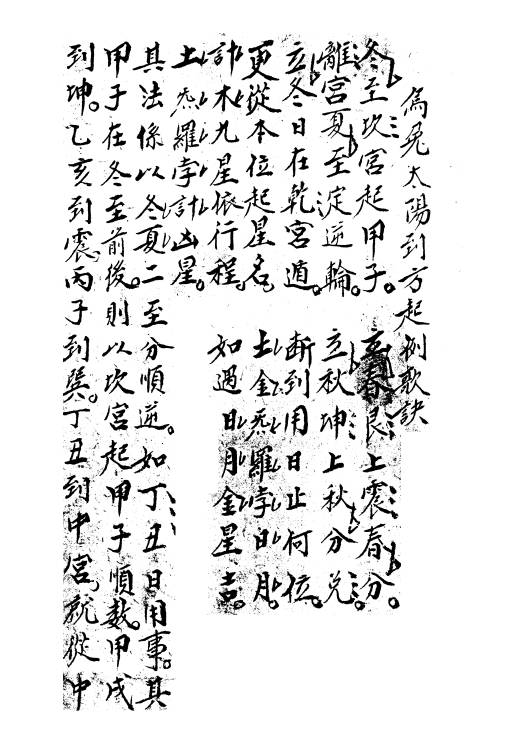 烏兔太陽到方起例歌訣
冬至坎宮起甲子。 立春艮上震春分。
離宮夏至淀逆輪。 立秋坤上秋分兌。
立冬日在乾宮遁。 断到用日止何位。
更從本位起星名。 土金炁羅孛日月。
計木九星依行程。 如遇日月金星吉。
土炁羅孛計凶星。
其法係以冬夏二至分順逆。如丁丑日用事。其
甲子在冬至前後。則以坎宮起甲子順数。甲戌
到坤。乙亥到震。丙子到巽。丁丑到中宮。就從中